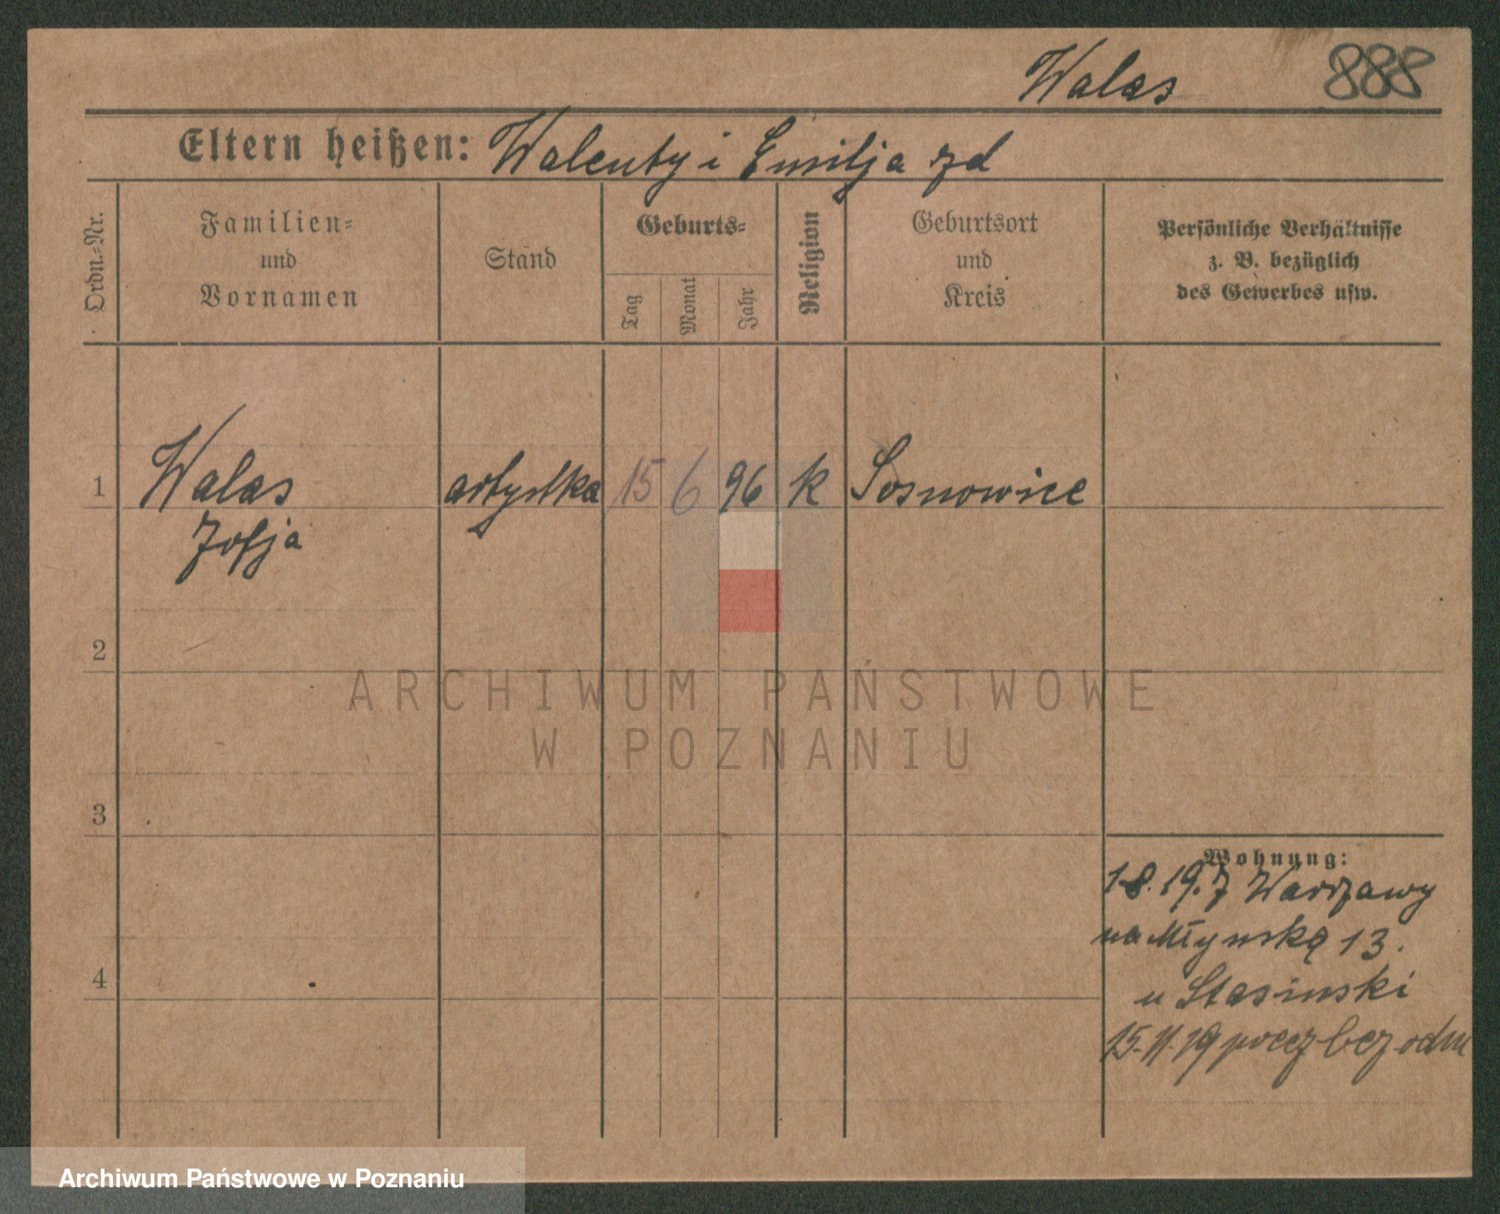 Walas 888
Eltern heißen: Walenty i Emilja zd
Ordn.-Nr.
Familien-
und
Vornamen
Stand
Geburts-
Tag
Monat
Jahr
Religion
Geburtsort
und
Kreis
Persönliche Verhältnisse
z. B. bezüglich
des Gewerbes usw.
1 Walas artystka 15 6 96 k Sosnowice
Zofja
2
ARCHIWUM PAŃSTWOWE
W POZNANIU
3
Wohnung:
1.8.19. z Warszawy
na Młynską 13.
u Stasinski
15.11.19 bez odm
4
Archiwum Państwowe w Poznaniu